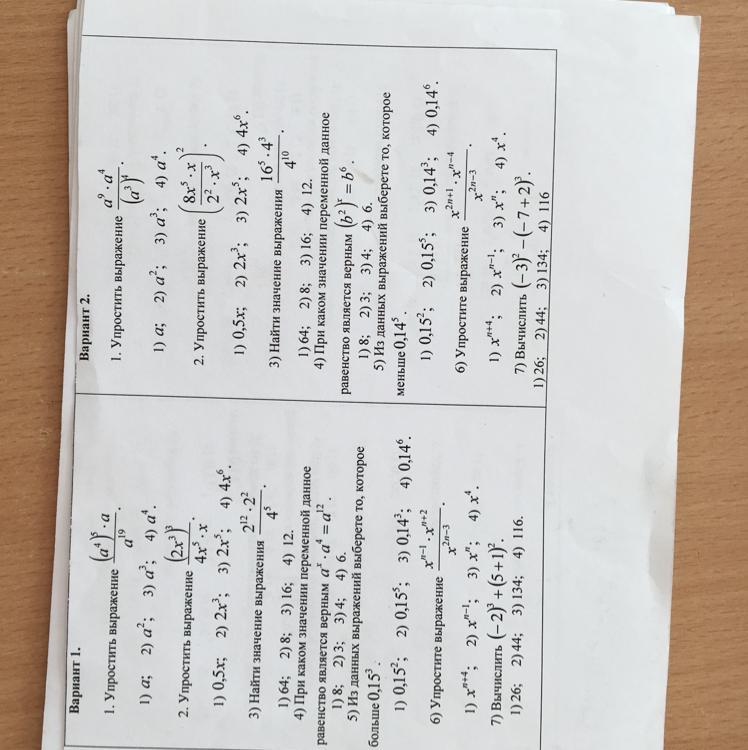 Вариант 1.
1. Упростить выражение \frac{(a^4)^5 \cdot a}{a^{19}}.
1) a; 2) a^2; 3) a^3; 4) a^4.
2. Упростить выражение \frac{(2x^3)^3}{4x^5 \cdot x}.
1) 0,5x; 2) 2x^3; 3) 2x^5; 4) 4x^6.
3) Найти значение выражения \frac{2^{12} \cdot 2^2}{4^5}.
1) 64; 2) 8; 3) 16; 4) 12.
4) При каком значении переменной данное
равенство является верным a^x \cdot a^4 = a^{12}.
1) 8; 2) 3; 3) 4; 4) 6.
5) Из данных выражений выберете то, которое
больше 0,15^3.
1) 0,15^2; 2) 0,15^5; 3) 0,14^3; 4) 0,14^6.
6) Упростите выражение \frac{x^{n-1} \cdot x^{n+2}}{x^{2n-3}}.
1) x^{n+4}; 2) x^{n-1}; 3) x^n; 4) x^4.
7) Вычислить (-2)^3 + (5+1)^2.
1) 26; 2) 44; 3) 134; 4) 116.
Вариант 2.
1. Упростить выражение \frac{a^9 \cdot a^4}{(a^3)^4}.
1) a; 2) a^2; 3) a^3; 4) a^4.
2. Упростить выражение \left(\frac{8x^5 \cdot x}{2^2 \cdot x^3}\right)^2.
1) 0,5x; 2) 2x^3; 3) 2x^5; 4) 4x^6.
3) Найти значение выражения \frac{16^5 \cdot 4^3}{4^{10}}.
1) 64; 2) 8; 3) 16; 4) 12.
4) При каком значении переменной данное
равенство является верным (b^2)^x = b^6.
1) 8; 2) 3; 3) 4; 4) 6.
5) Из данных выражений выберете то, которое
меньше 0,14^5.
1) 0,15^2; 2) 0,15^5; 3) 0,14^3; 4) 0,14^6.
6) Упростите выражение \frac{x^{2n+1} \cdot x^{n-4}}{x^{2n-3}}.
1) x^{n+4}; 2) x^{n-1}; 3) x^n; 4) x^4.
7) Вычислить (-3)^2 - (-7+2)^3.
1) 26; 2) 44; 3) 134; 4) 116